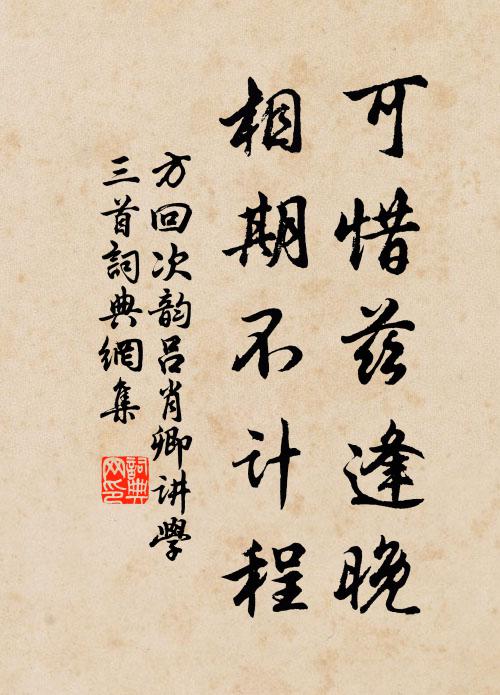 可惜兹逢晚
相期不计程
方回次韵吕肖卿讲学
三首詞典網集
詞典網印